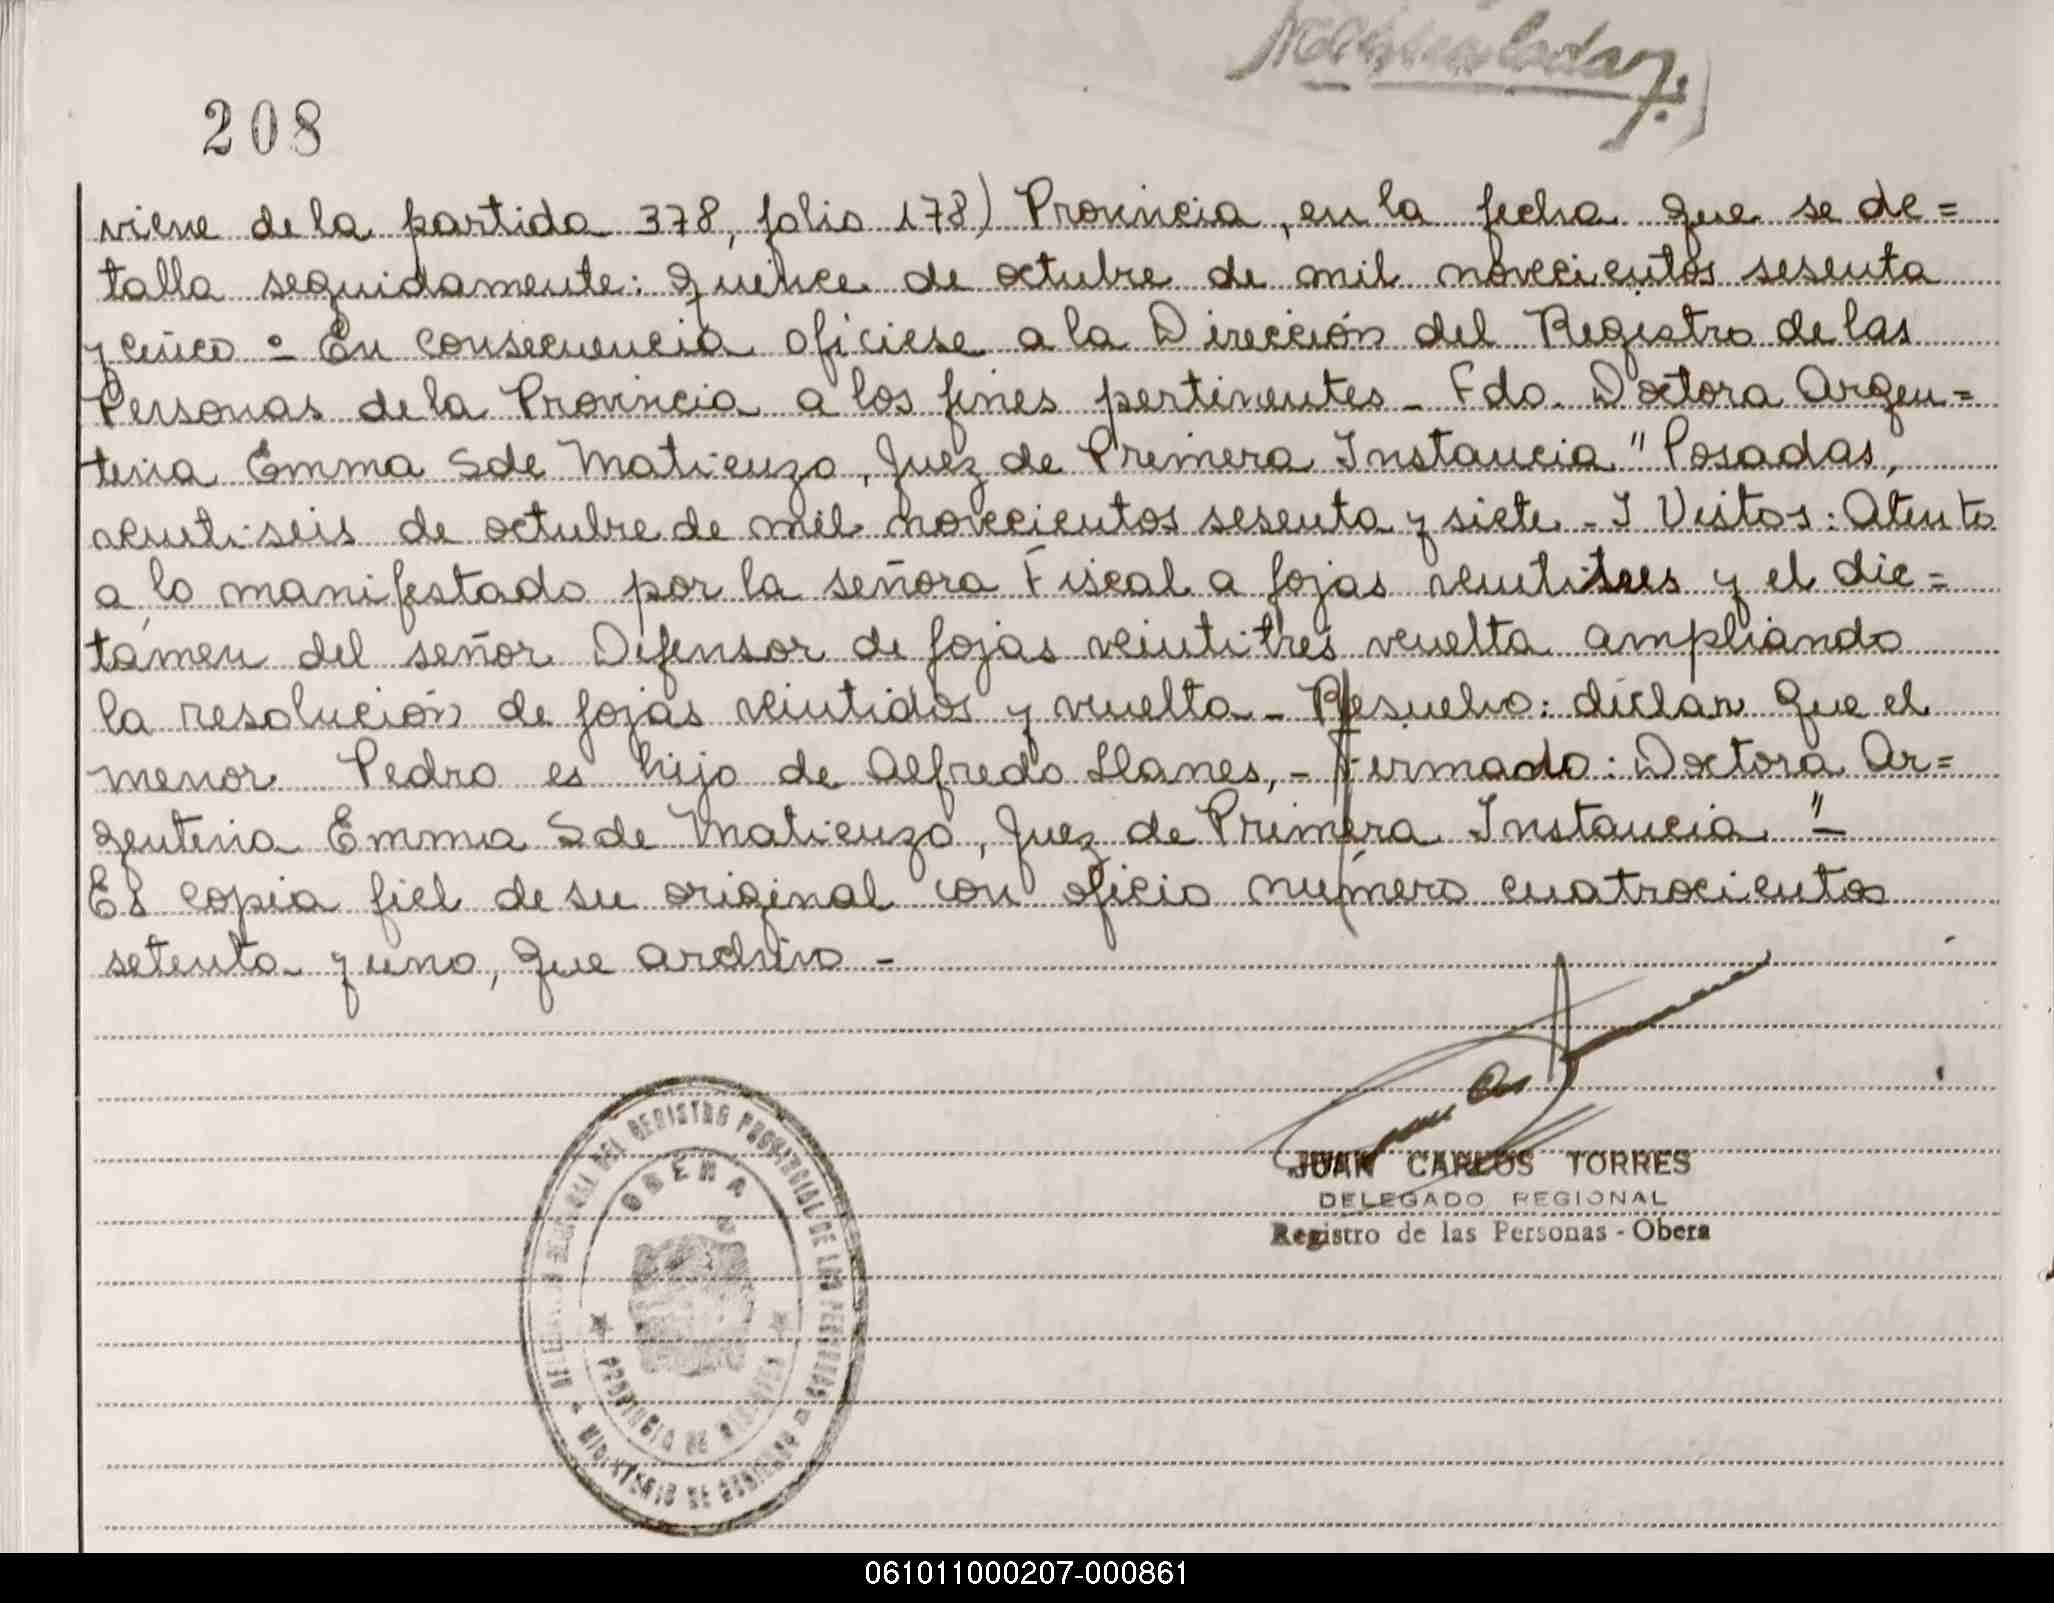 208
viene de la partida 378, folio 178) Provincia, en la fecha que se de=
talla seguidamente: quince de octubre de mil novecientos sesenta
y cinco - En consecuencia ofíciese a la Dirección del Registro de las
Personas de la Provincia a los fines pertinentes - Fdo. Doctora Argen=
tina Emma S de Matienzo, Juez de Primera Instancia" Posadas,
veintiseis de octubre de mil novecientos sesenta y siete - Y Vistos: Atento
a lo manifestado por la señora Fiscal a fojas veintitres y el dic=
támen del señor Defensor de fojas veintitres vuelta ampliando
la resolución de fojas veintidos y vuelta - Resuelvo: declar que el
menor Pedro es hijo de Alfredo Llanes, - Firmado: Doctora Ar=
gentina Emma S de Matienzo, Juez de Primera Instancia "-
Es copia fiel de su original con oficio número cuatrocientos
setenta y uno, que archivo -
JUAN CARLOS TORRES
DELEGADO REGIONAL
Registro de las Personas - Obera
DEL REGISTRO PROVINCIAL DE LAS PERSONAS
OBERA
PROVINCIA DE MISIONES
MINISTERIO DE GOBIERNO
061011000207-000861